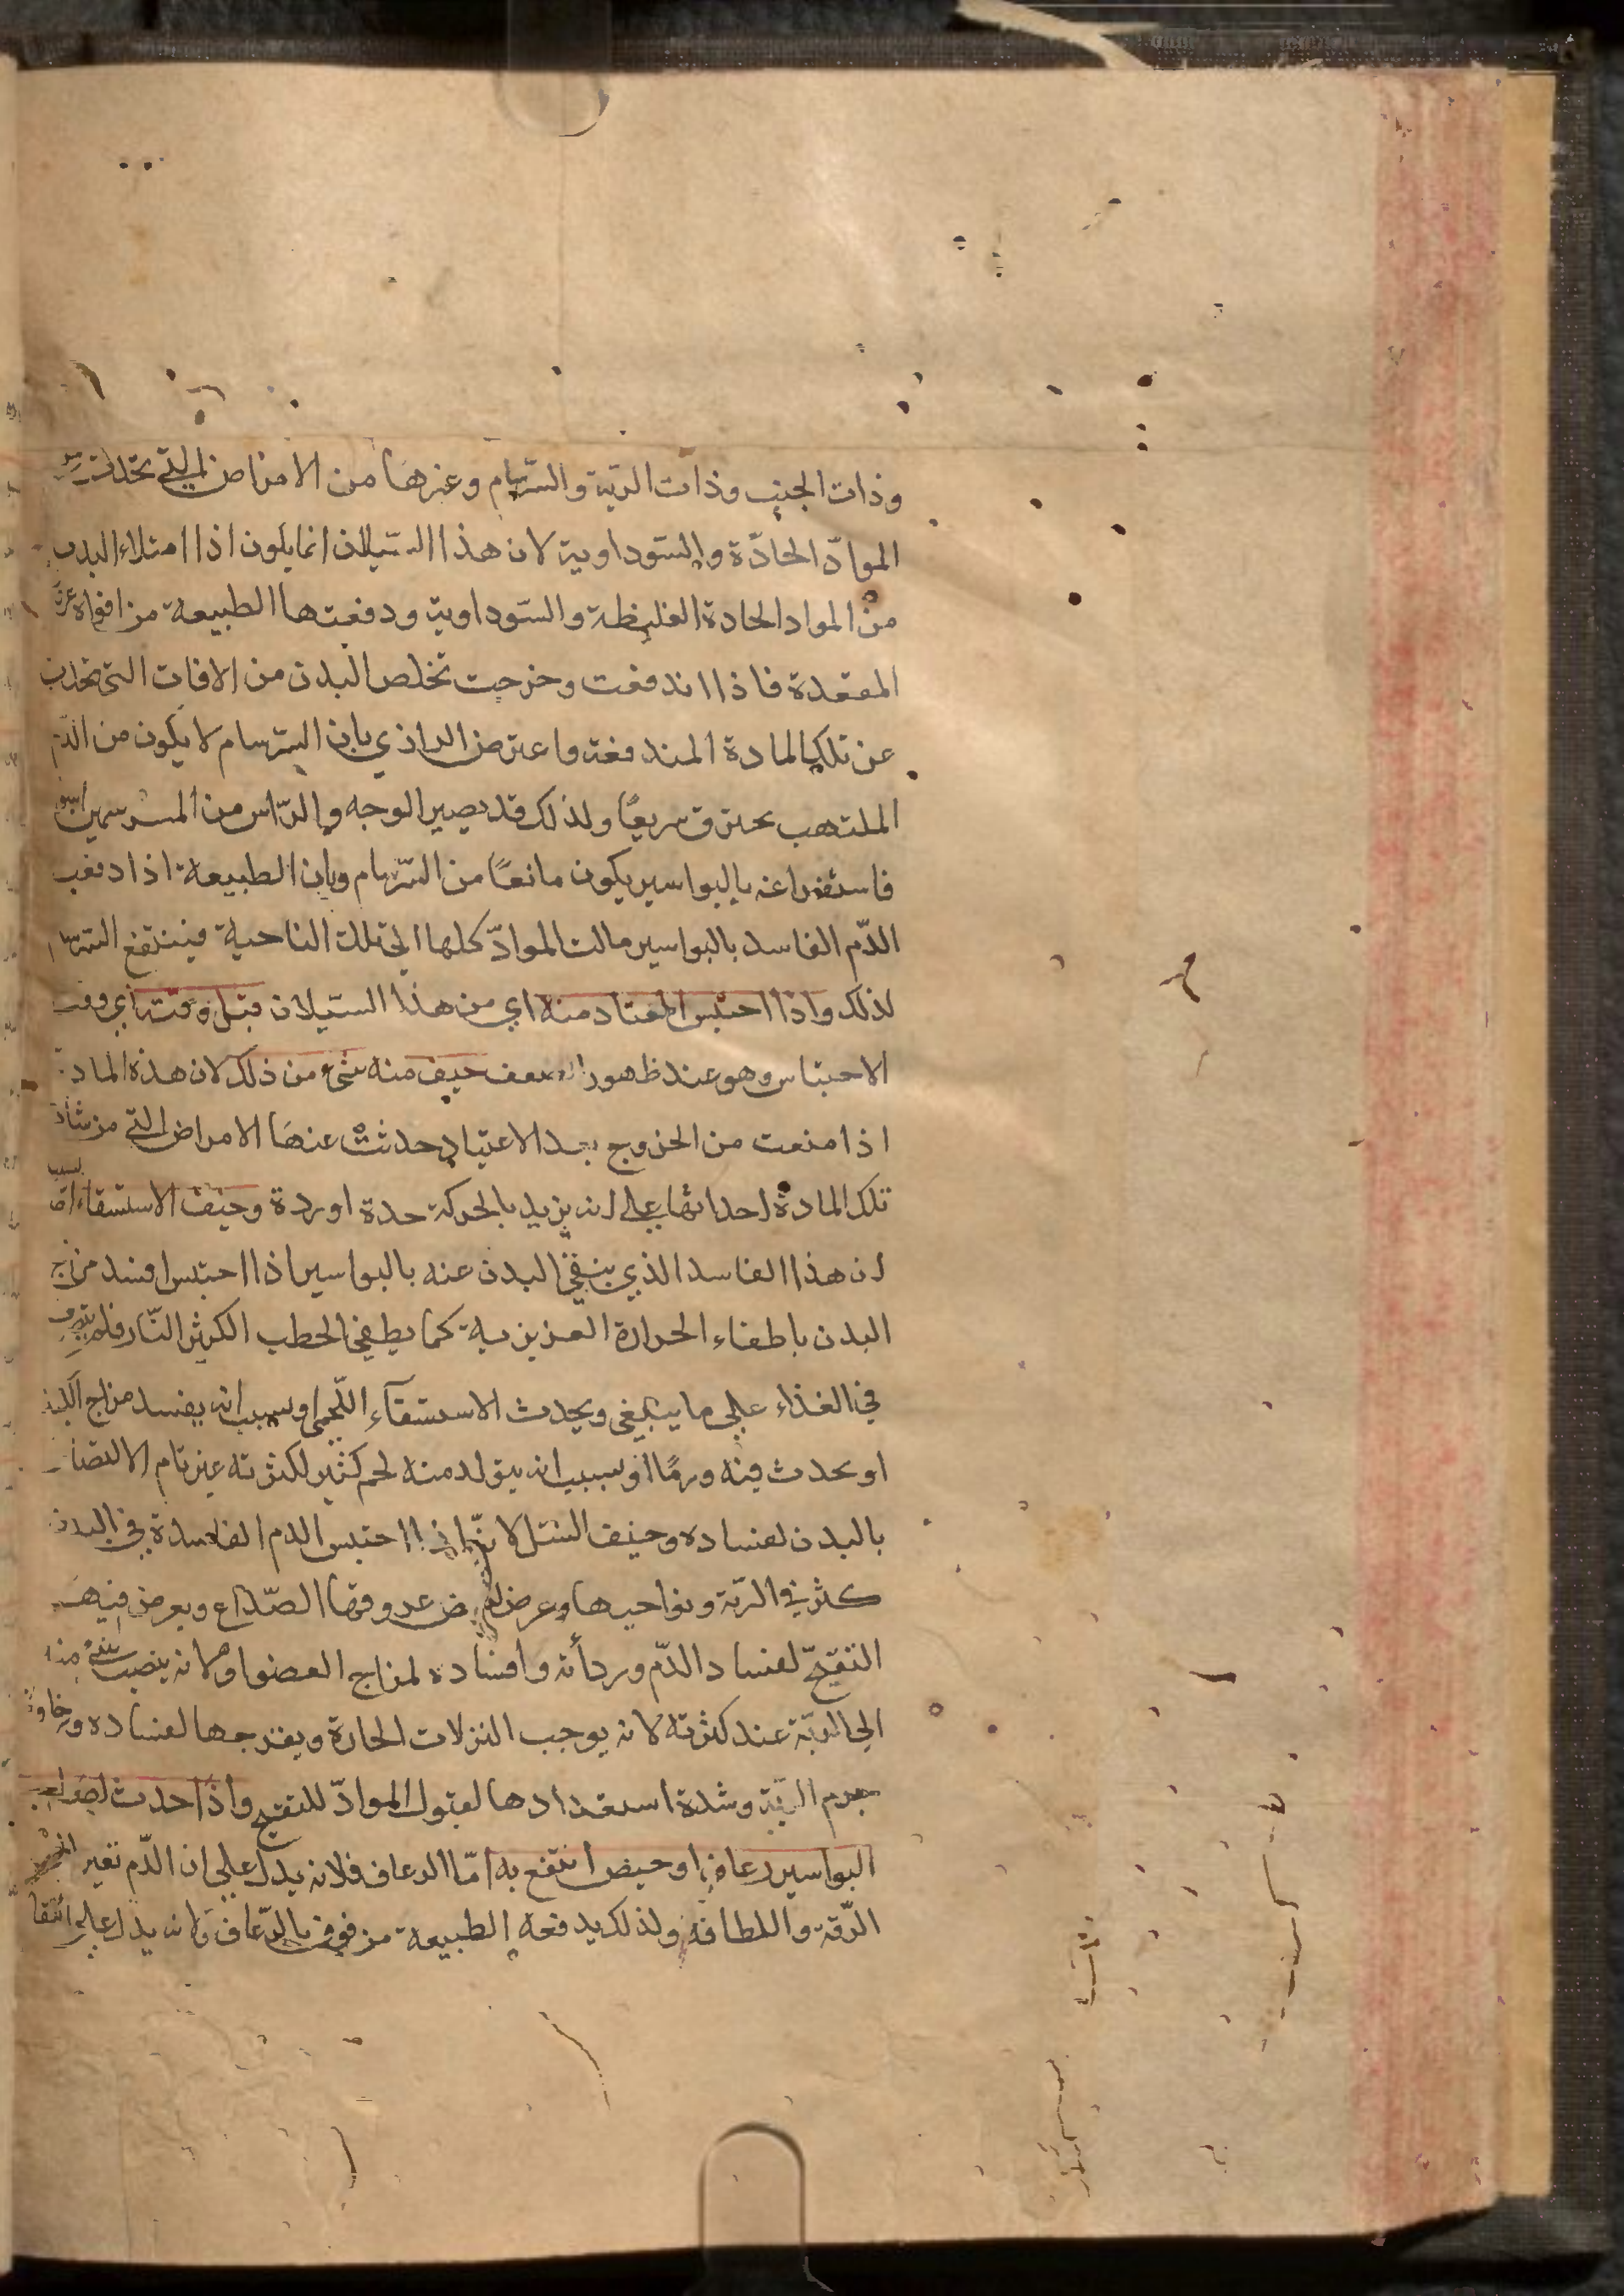 وذات الجنب وذات الرية والسرسام وغيرها من الامراض التي تحدث من
الموادّ الحادّة والسّوداوية لان هذا السّيلان انما يكون اذا امتلاء البدن
من المواد الحادة الغليظة والسّوداوية ودفعتها الطبيعة من افواه عروق
المقعدة فاذا اندفعت وخرجت تخلص البدن من الافات التي تحدث
عن تلك المادة المندفعة واعترض الرازي بان السرسام لا يكون من الدّم
الملتهب يحترق سريعًا ولذلك قد يصير الوجه والرّاس من المسرسمين اسود
فاستفراغه بالبواسير يكون مانعًا من السّرسام وبان الطبيعة اذا دفعت
الدّم الفاسد بالبواسير مالت الموادّ كلها الى تلك الناحية فينتفع السرسام
لذلك واذا احتبس المعتاد منه اي من هذا السّيلان قبل وقته اي وقت
الاحتباس وهو عند ظهور الضعف خيف منه شيء من ذلك لان هذه المادة
اذا منعت من الخروج بعد الاعتياد حدثت عنها الامراض التي من شأن
تلك المادة احداثها على انه يزيد بالحركة حدة او ردة وخيف الاستسقاء اما بسبب
ان هذا الفاسد الذي ينقي البدن عنه بالبواسير اذا احتبس افسد مزاج
البدن باطفاء الحرارة الغريزية كما يطفي الحطب الكثير النّار فلم يتصرف
في الغذاء على ما ينبغي ويحدث الاستسقآء اللّحمي او بسبب انه يفسد مزاج الكبد
او يحدث فيه ورمًا او بسبب انه يتولد منه لحم كثير لكثرته غير تام الالتصاق
بالبدن لفساده وخيف السّل لانّه اذا احتبس الدم الفاسدة في البدن
كثر في الرّية ونواحيها وعرض لبعض عروقها الصّداع ويعرض فيها
التقيّح لفساد الدّم وردأته وافساده لمزاج العضو او لانه ينصب شيء منه
الى الرّية عند كثرته لانه يوجب النزلات الحارة ويقرحها لفساده ورخاوة
جرم الرّية وشدة استعدادها لقبول الموادّ للتقيح واذا حدث لصاحب
البواسير رعاف او حيض انتفع به امّا الرعاف فلانه يدل على ان الدّم تغير الى
الرّقة واللطافة ولذلك يدفعه الطبيعة من فوق بالرّعاف ولانه يدل على انتقا